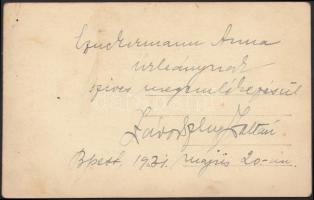 Czuckermann Anna
úrleánynak
szíves megemlékezésül
Závodszky Zoltán
Bpest, 1931. május 20-án.